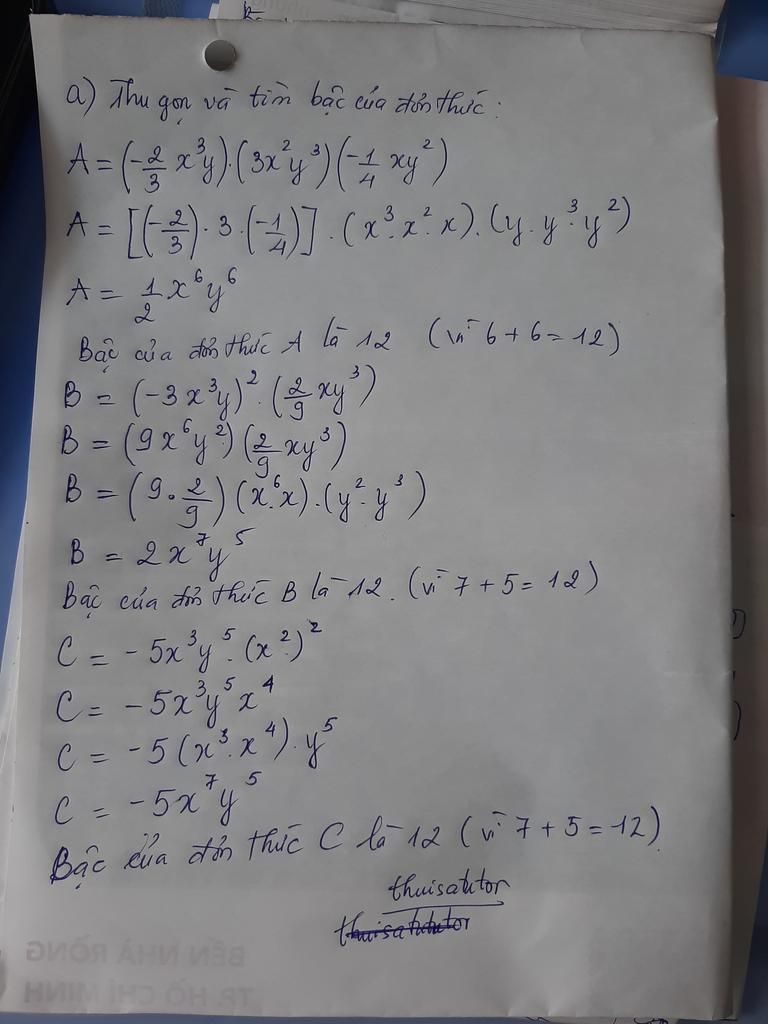 a) Thu gọn và tìm bậc của đơn thức:
A = (-2/3 x³y).(3x²y³)(-1/4 xy²)
A = [(-2/3).3.(-1/4)].(x³.x².x).(y.y³.y²)
A = 1/2 x⁶y⁶
Bậc của đơn thức A là 12 (vì 6+6=12)
B = (-3x³y)².(2/9 xy³)
B = (9x⁶y²)(2/9 xy³)
B = (9.2/9)(x⁶.x).(y².y³)
B = 2x⁷y⁵
Bậc của đơn thức B là 12. (vì 7+5=12)
C = -5x³y⁵.(x²)²
C = -5x³y⁵x⁴
C = -5(x³.x⁴).y⁵
C = -5x⁷y⁵
Bậc của đơn thức C là 12 (vì 7+5=12)
thuisatutor
BẾN NHÀ RỒNG
TP. HỒ CHÍ MINH